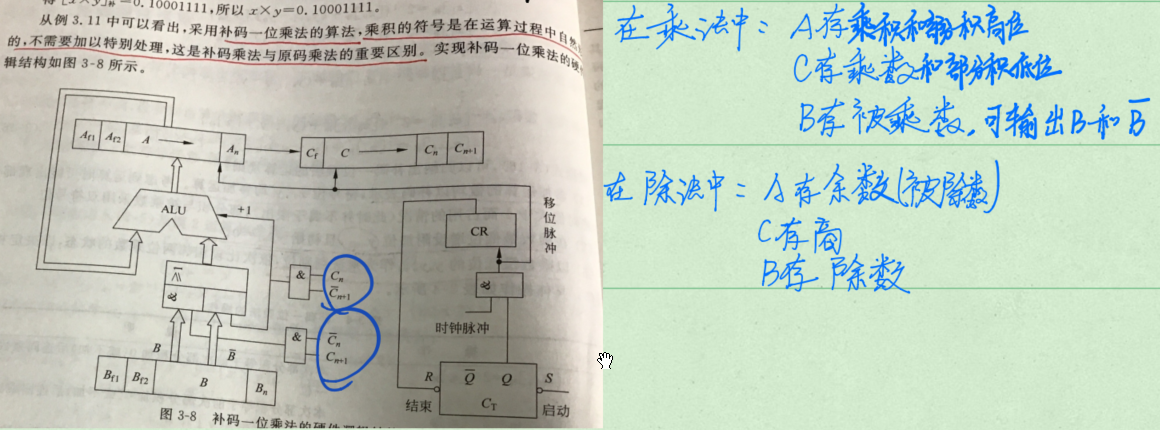 得[x×y]补=0.10001111,所以 x×y=0.10001111。
从例 3.11 中可以看出,采用补码一位乘法的算法,乘积的符号是在运算过程中自然
的,不需要加以特别处理,这是补码乘法与原码乘法的重要区别。实现补码一位乘法的硬
辑结构如图 3-8 所示。
Af1 Af2 A An
Cf C Cn Cn+1
ALU
+1
移位脉冲
CR
&
Cn
C̅n+1
&
时钟脉冲
&
C̅n
Cn+1
B B̅
Bf1 Bf2 B Bn
R Q̅ Q S
结束 CT 启动
图 3-8 补码一位乘法的硬件逻辑
在乘法中: A存乘积和部分积高位
C存乘数和部分积低位
B存被乘数,可输出B和B̅
在除法中: A存余数(被除数)
C存商
B存除数